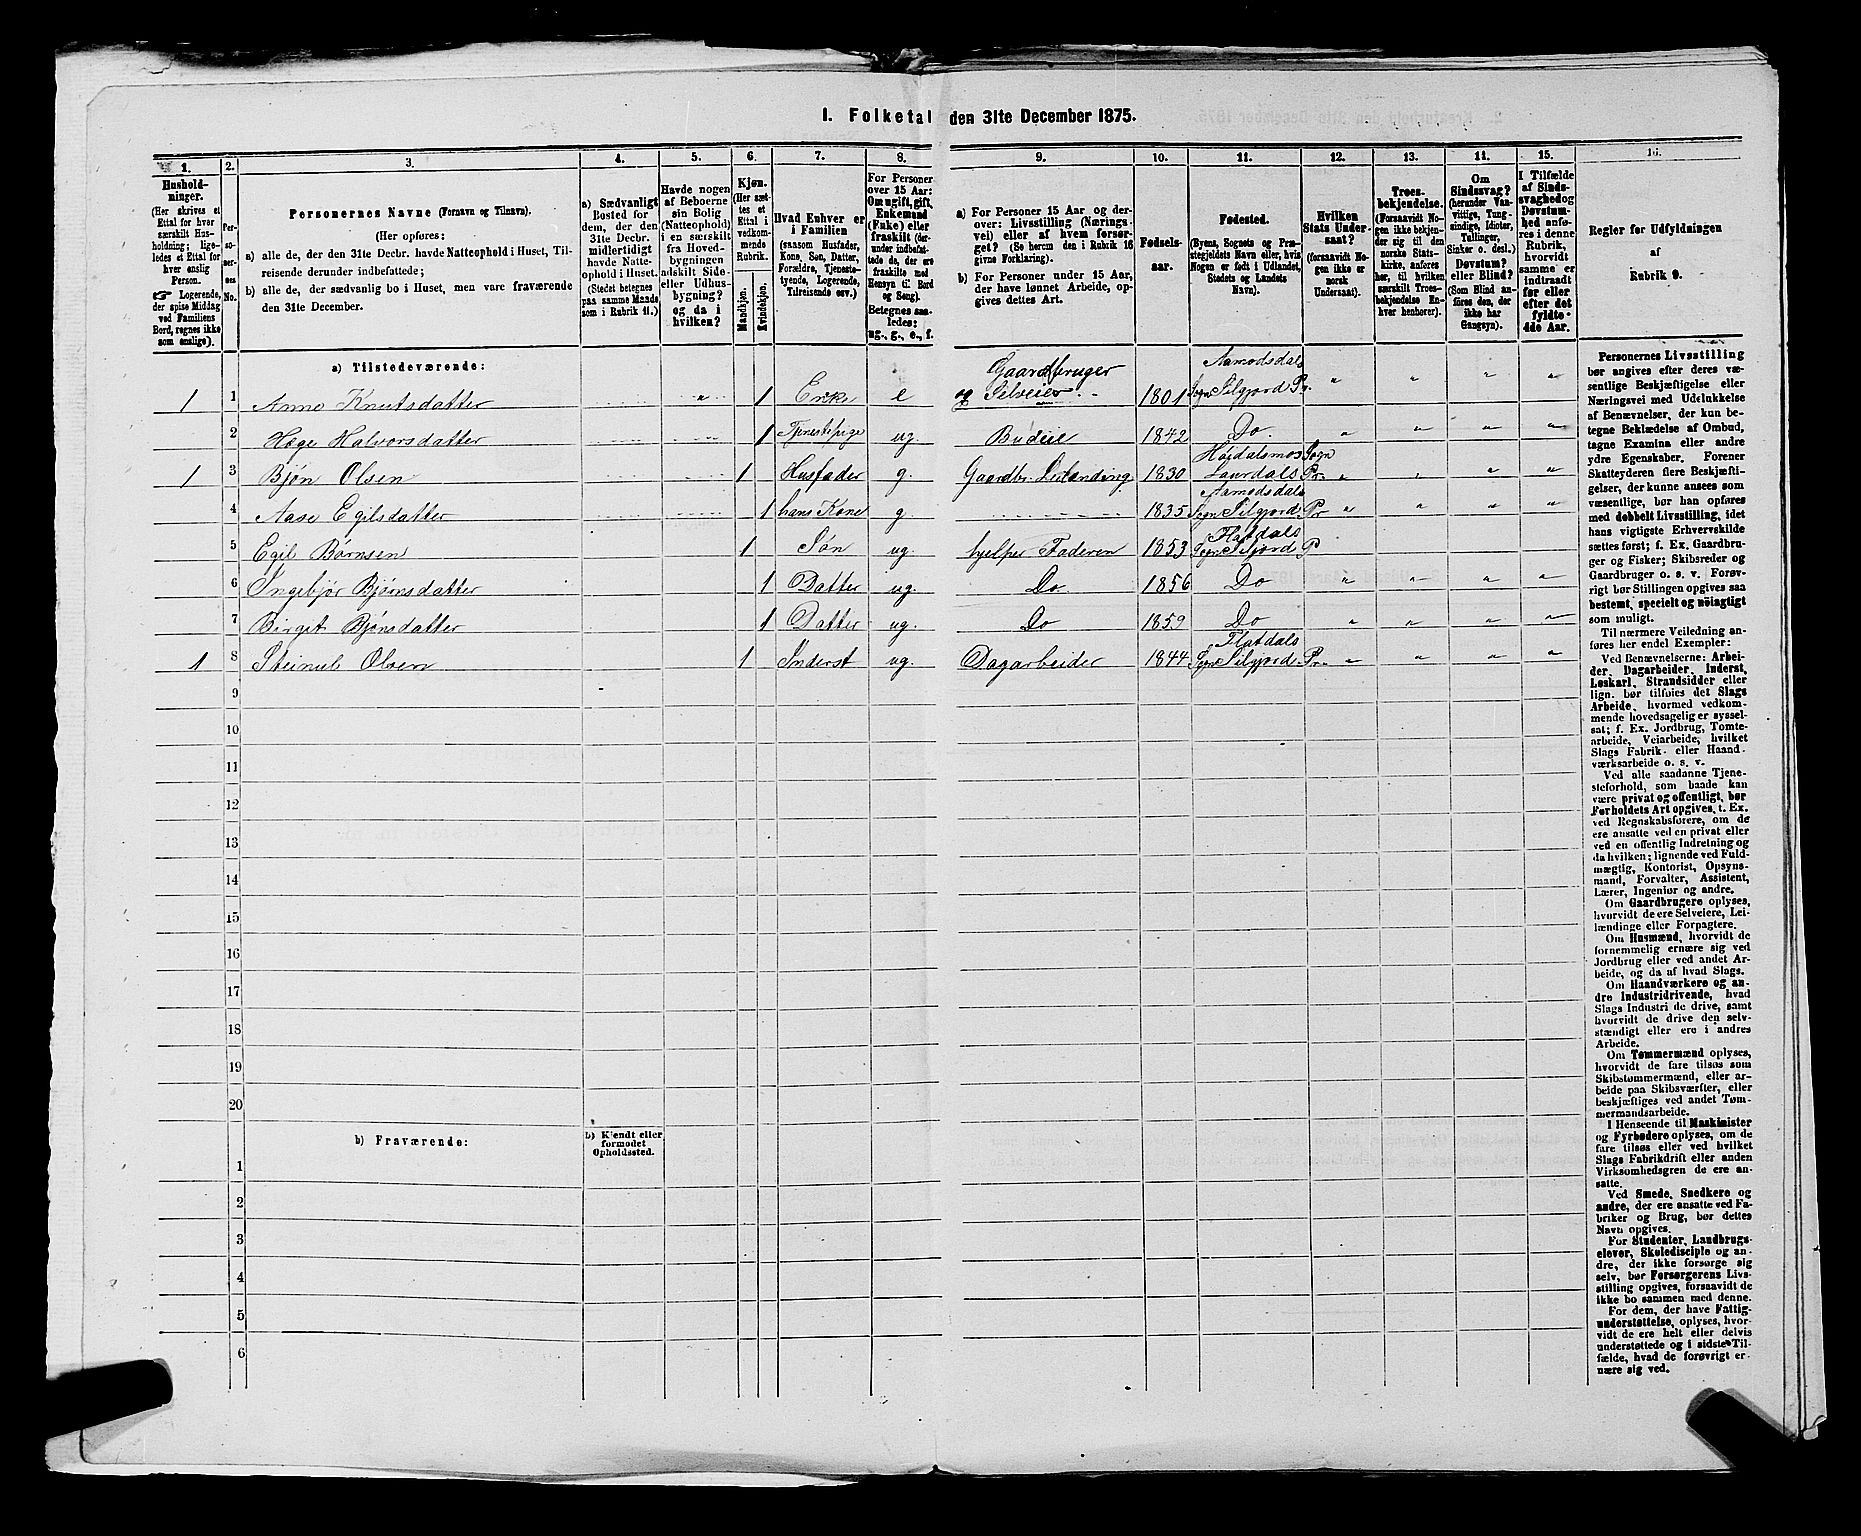 I. Folketal den 31te December 1875.
1. 2. 3. 4. 5. 6. 7. 8. 9. 10. 11. 12. 13. 14. 15. 16.
Husholdninger.
(Her skrives et
Ettal for hver
særskilt Husholdning;
ligeledes et Ettal for
hver enslig
Person.
☞ Logerende,
der spise Middag
ved Familiens
Bord, regnes ikke
som enslige).
Personernes No.
Personernes Navne (Fornavn og Tilnavn).
(Her opføres:
a) alle de, der den 31te Decbr. havde Natteophold i Huset, Tilreisende
derunder indbefattede;
b) alle de, der sædvanlig bo i Huset, men vare fraværende
den 31te December.
a) Sædvanligt
Bosted for
dem, der den
31te Decbr.
midlertidigt
havde Natteophold
i Huset.
(Stedet betegnes
paa samme Maade
som i Rubrik 11.)
Havde nogen
af Beboerne
sin Bolig
(Natteophold)
i en særskilt
fra Hovedbygningen
adskilt Side-
eller Udhusbygning?
og da i
hvilken?
Kjøn.
(Her sættes
et
Ettal i
vedkommende
Rubrik.
Mandkjøn.
Kvindekjøn.
Hvad Enhver er
i Familien
(saasom Husfader,
Kone, Søn, Datter,
Forældre, Tjenestetyende,
Logerende,
Tilreisende osv.)
For Personer
over 15 Aar:
Om ugift, gift,
Enkemand
(Enke) eller
fraskilt (derunder
indbefattede
de, der ere
fraskilte med
Hensyn til Bord
og Seng).
Betegnes saaledes:
ug., g., e., f.
a) For Personer 15 Aar og derover:
Livsstilling (Næringsvei)
eller af hvem forsørget?
(Se herom den i Rubrik 16
givne Forklaring).
b) For Personer under 15 Aar,
der have lønnet Arbeide, opgives
dettes Art.
Fødselsaar.
Fødested.
(Byens, Sognets og Præstegjeldets
Navn, eller, hvis
Nogen er født i Udlandet,
Stedets og Landets
Navn).
Hvilken
Stats Undersaat?
(forsaavidt Nogen
ikke er
norsk
Undersaat).
Troesbekjendelse.
(Forsaavidt Nogen
ikke bekjender
sig til den
norske Statskirke,
anføres
her, til hvilken
særskilt Troesbekjendelse
Enhver
henhører).
Om
Sindssvag?
(herunder Vanvittige,
Tungsindige,
Idioter,
Tullinger,
Sinker o. desl.)
Døvstum?
eller Blind?
(Som Blind anføres
den, der
ikke har
Gangsyn).
I Tilfælde
af Sindssvaghed
og
Døvstumhed
anføres
i denne
Rubrik,
hvorvidt
samme er
indtraadt
før eller
efter det
fyldte
4de Aar.
Regler for Udfyldningen
af
Rubrik 9.
a) Tilstedeværende:
1 1 Anne Knutsdatter „ 1 Enke e Gaardbruger og Selveier 1801 Aamodsdals Sogn Silgjord Pr. „ „ „ „
2 Hæge Halvorsdatter 1 Tjenestepige ug. Budeie 1842 Do. „ „ „ „
1 3 Bjøn Olsen 1 Husfader g. Gaardbr. Leilænding 1830 Høidalsmos Sogn Laurdals Pr. „ „ „ „
4 Aase Egilsdatter 1 hans Kone g. 1835 Aamodsdals Sogn Silgjord Pr „ „ „ „
5 Egil Børnsen 1 Søn ug. hjelper Faderen 1853 Flatdals Sogn Siljord P
6 Ingebjør Bjønsdatter 1 Datter ug. Do. 1856 Do „ „ „ „
7 Birget Bjønsdatter 1 Datter ug. Do 1859 Do „ „ „ „
1 8 Steinul Olsen 1 Inderst ug. Dagarbeider 1844 Flatdals Sogn Silgjord Pr. „ „ „ „
9
10
11
12
13
14
15
16
17
18
19
20
b) Fraværende:
b) Kjendt eller
formodet
Opholdssted.
1
2
3
4
5
6
Personernes Livsstilling
bør angives efter deres væsentlige
Beskjæftigelse eller
Næringsvei med Udelukkelse
af Benævnelser, der kun betegne
Beklædelse af Ombud,
tagne Examina eller andre
ydre Egenskaber. Forener
Skatteyderen flere Beskjæftigelser,
der kunne ansees som
væsentlige, bør han opføres
med dobbelt Livsstilling, idet
hans vigtigste Erhvervskilde
sættes først; f. Ex. Gaardbruger
og Fisker; Skibsreder og
Gaardbruger o. s. v. Forøvrigt
bør Stillingen opgives saa
bestemt, specielt og nøiagtigt
som muligt.
Til nærmere Veiledning anføres
her endel Exempler:
Ved Benævnelserne: Arbeider,
Dagarbeider, Inderst,
Løskarl, Strandsidder eller
lign. bør tilføies det Slags
Arbeide, hvormed vedkommende
hovedsagelig er sysselsat;
f. Ex. Jordbrug, Tomtearbeide,
Veiarbeide, hvilket
Slags Fabrik- eller Haandværksarbeide
o. s. v.
Ved alle saadanne Tjenesteforhold,
som baade kan
være privat og offentligt, bør
Forholdets Art opgives, t. Ex.
ved Regnskabsførere, om de
ere ansatte ved en privat eller
ved en offentlig Indretning og
da hvilken; lignende ved Fuldmægtig,
Kontorist, Opsynsmand,
Forvalter, Assistent,
Lærer, Ingeniør og andre.
Om Gaardbrugere oplyses,
hvorvidt de ere Selveiere, Leilændinge
eller Forpagtere.
Om Husmænd, hvorvidt de
fornemmelig ernære sig ved
Jordbrug eller ved andet Arbeide,
og da af hvad Slags.
Om Haandværkere og andre
Industridrivende, hvad
Slags Industri de drive, samt
hvorvidt de drive den selvstændigt
eller ere i andres
Arbeide.
Om Tømmermænd oplyses,
hvorvidt de fare tilsøs som
Skibstømmermænd, eller arbeide
paa Skibsværfter, eller
beskjæftiges ved andet Tømmermandsarbeide.
I Henseende til Maskinister
og Fyrbødere oplyses, om de
fare tilsøs eller ved hvilket
Slags Fabrikdrift eller anden
Virksomhedsgren de ere ansatte.
Ved Smede, Snedkere og
andre, der ere ansatte ved Fabriker
og Brug, bør dettes
Navn opgives.
For Studenter, Landbrugselever,
Skoledisciple og andre,
der ikke forsørge sig
selv, bør Forsørgerens Livsstilling
opgives, forsaavidt de
ikke bo sammen med denne.
For dem, der have Fattigunderstøttelse,
oplyses, hvorvidt
de ere helt eller delvis
understøttede og i sidste Tilfælde,
hvad de forøvrigt ernære
sig ved.